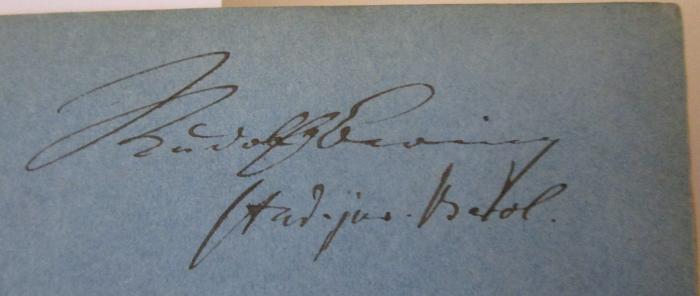 Rudolf
stud. jur. Berol.